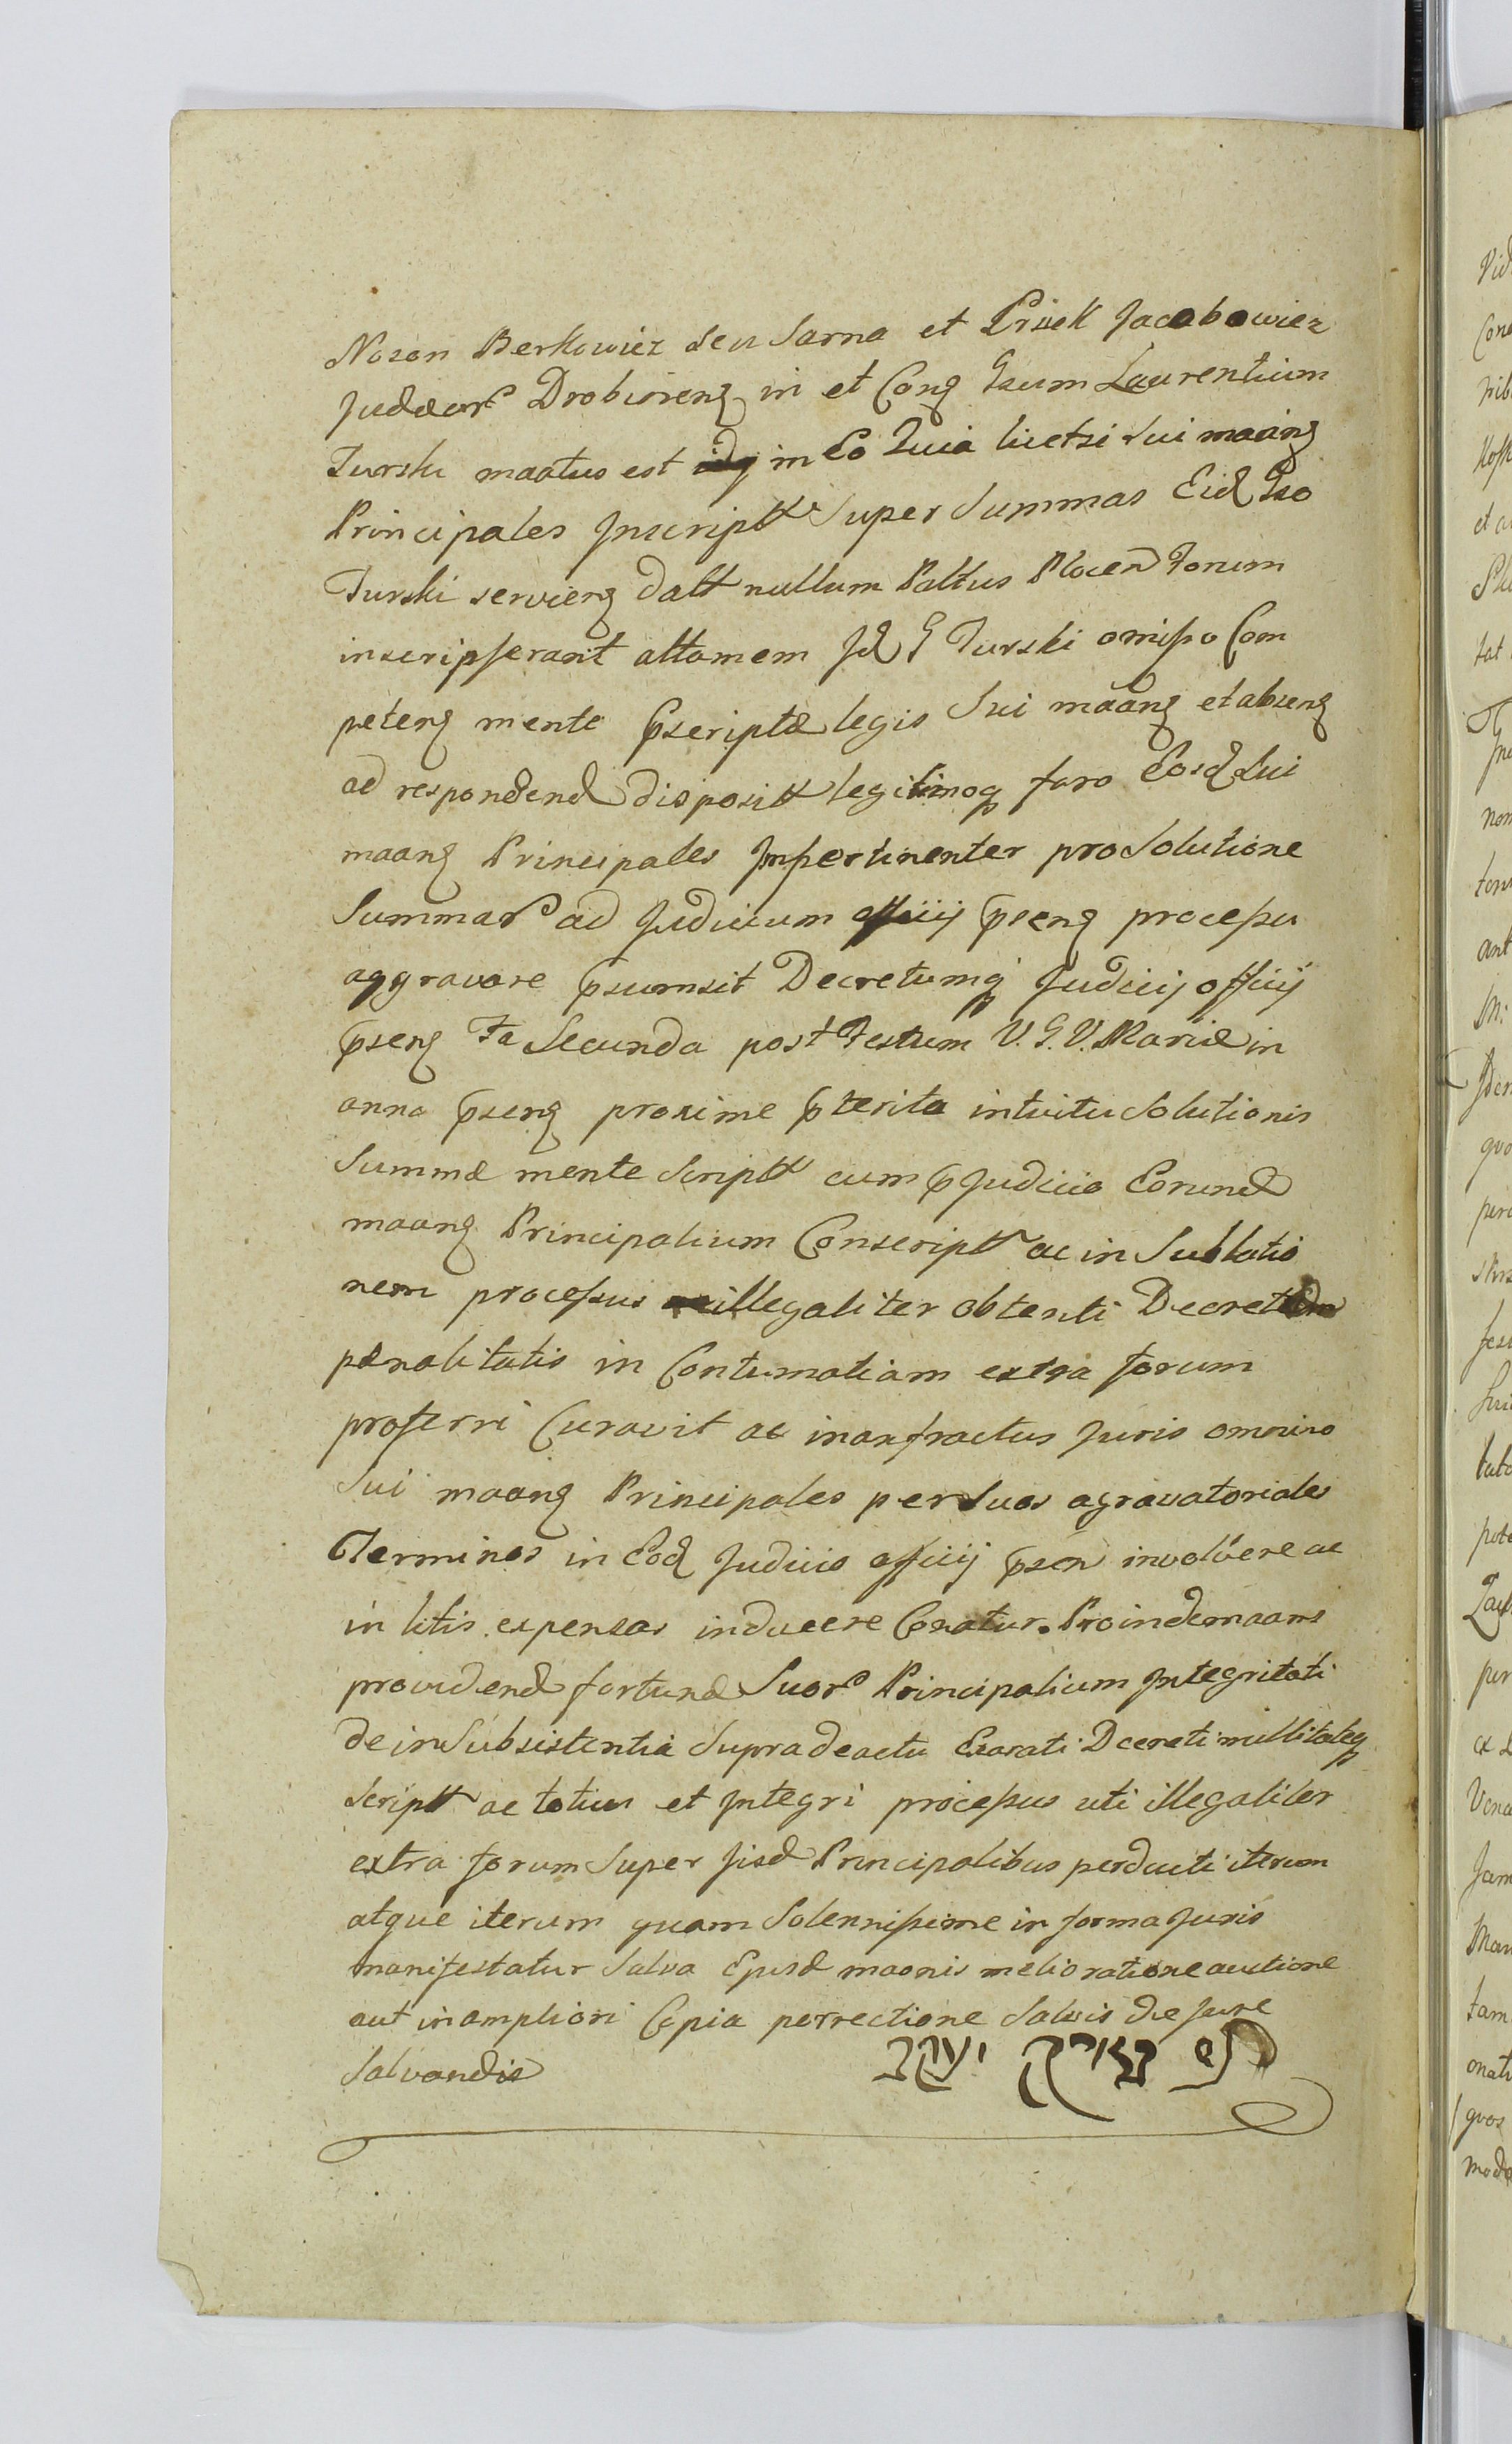 Noson Berkowicz seu Sarna et Jacobowicz
Judæor Drobinens in et Cons Gsum Laurentium
Turski maatus est in Eo Quia licetsi sui maans
Principales Inscriptt super Summas Eid Gso
Turski serviens datt nullum Paltus Plocen forum
inscripserant attamem Id G Turski omisso Com
petens mente pscriptæ legis sui maans et absens
ad respondend disposit legitimoq foro Eosd Sui
maans Principales Impertinenter pro Solutione
Summar ad Judicium officij psens processu
aggravare psumsit Decretumq Judicij officij
psens Fa Secunda post Festum V. G. V. Mariæ in
anno psens proxime pterita intuitu Solutionis
Summæ mente Scriptt cum pjudicio Eorund
maans Principalium Conscriptt ac in Sublatio
nem processus illegaliter obtenti Decretum
pænalitatis in Contumatiam extra forum
proferri Curavit ac in anfractus Juris omnino
Sui maans Principales per Suos agravatoriales
Terminos in Eod Judicio officij psen involvere ac
in litis expensas inducere Conatur. Proinde maans
providend fortunæ Suor Principalium Integritati
de in Subsistentia Supra de actu Exarati Decreti nullitateq
Scriptt ac totius et Integri processus uti illegaliter
extra forum Super Jisd Principalibus perducti iterum
atque iterum quam Solennissime in forma Juris
manifestatur Salva Ejusd maonis melioratione auctione
aut in ampliori Copia porrectione Salvis de Jure
Salvandis יעקב